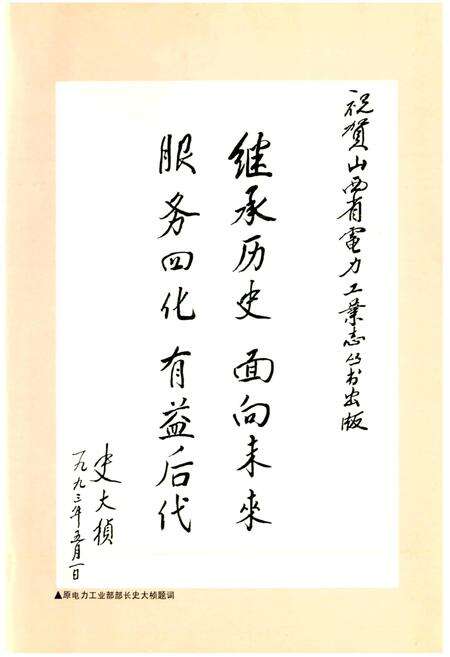 祝贺山西省電力工業志丛书出版
继承历史 面向未來
服务四化 有益后代
史大楨
一九九三年五月一日
▲原电力工业部部长史大桢题词